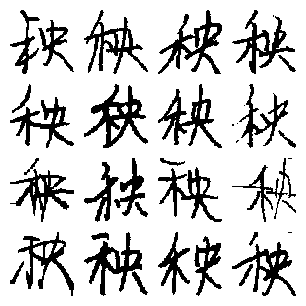 秧秧秧秧
秧秧秧秧
秧秧秧秧
秧秧秧秧